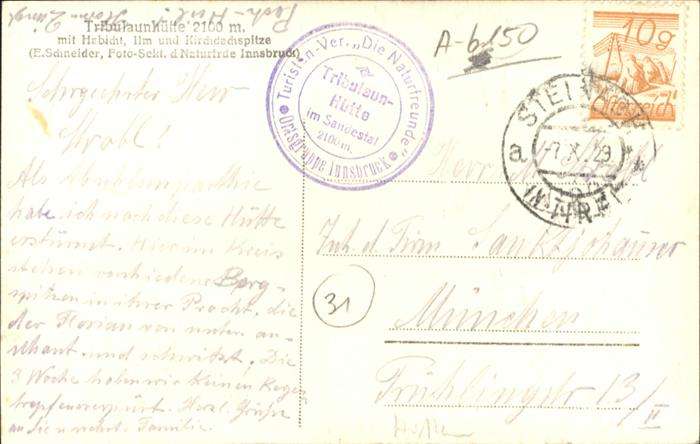 Tribulaunhütte 2100 m.
mit Habicht, Ilm und Kirchdachspitze
(E.Schneider, Foto-Sekt. d Naturfrde Innsbruck)
A-6150
10g
Österreich
Turisten-Ver. „Die Naturfreunde"
Ortsgruppe Innsbruck
Tribulaun-
Hütte
im Sandestal
2100 m.
STEINACH
a
7.X.29
IN TIROL
Sehrgeehrter Herr
Strobl!
Als
habe ich noch diese Hütte
erstürmt. Hier im Kreis
stehen verschiedene Berg-
spitzen in ihrer Pracht, die
der Florian von unten an-
schaut und schwitzt. Die
3 Woche haben wir keinen Regen
tropfen verspürt. Herzl. Grüße
an Sie u. werte Familie.
Herrn
Inh. d. Firm
München
Frühlingstr 13/II
31